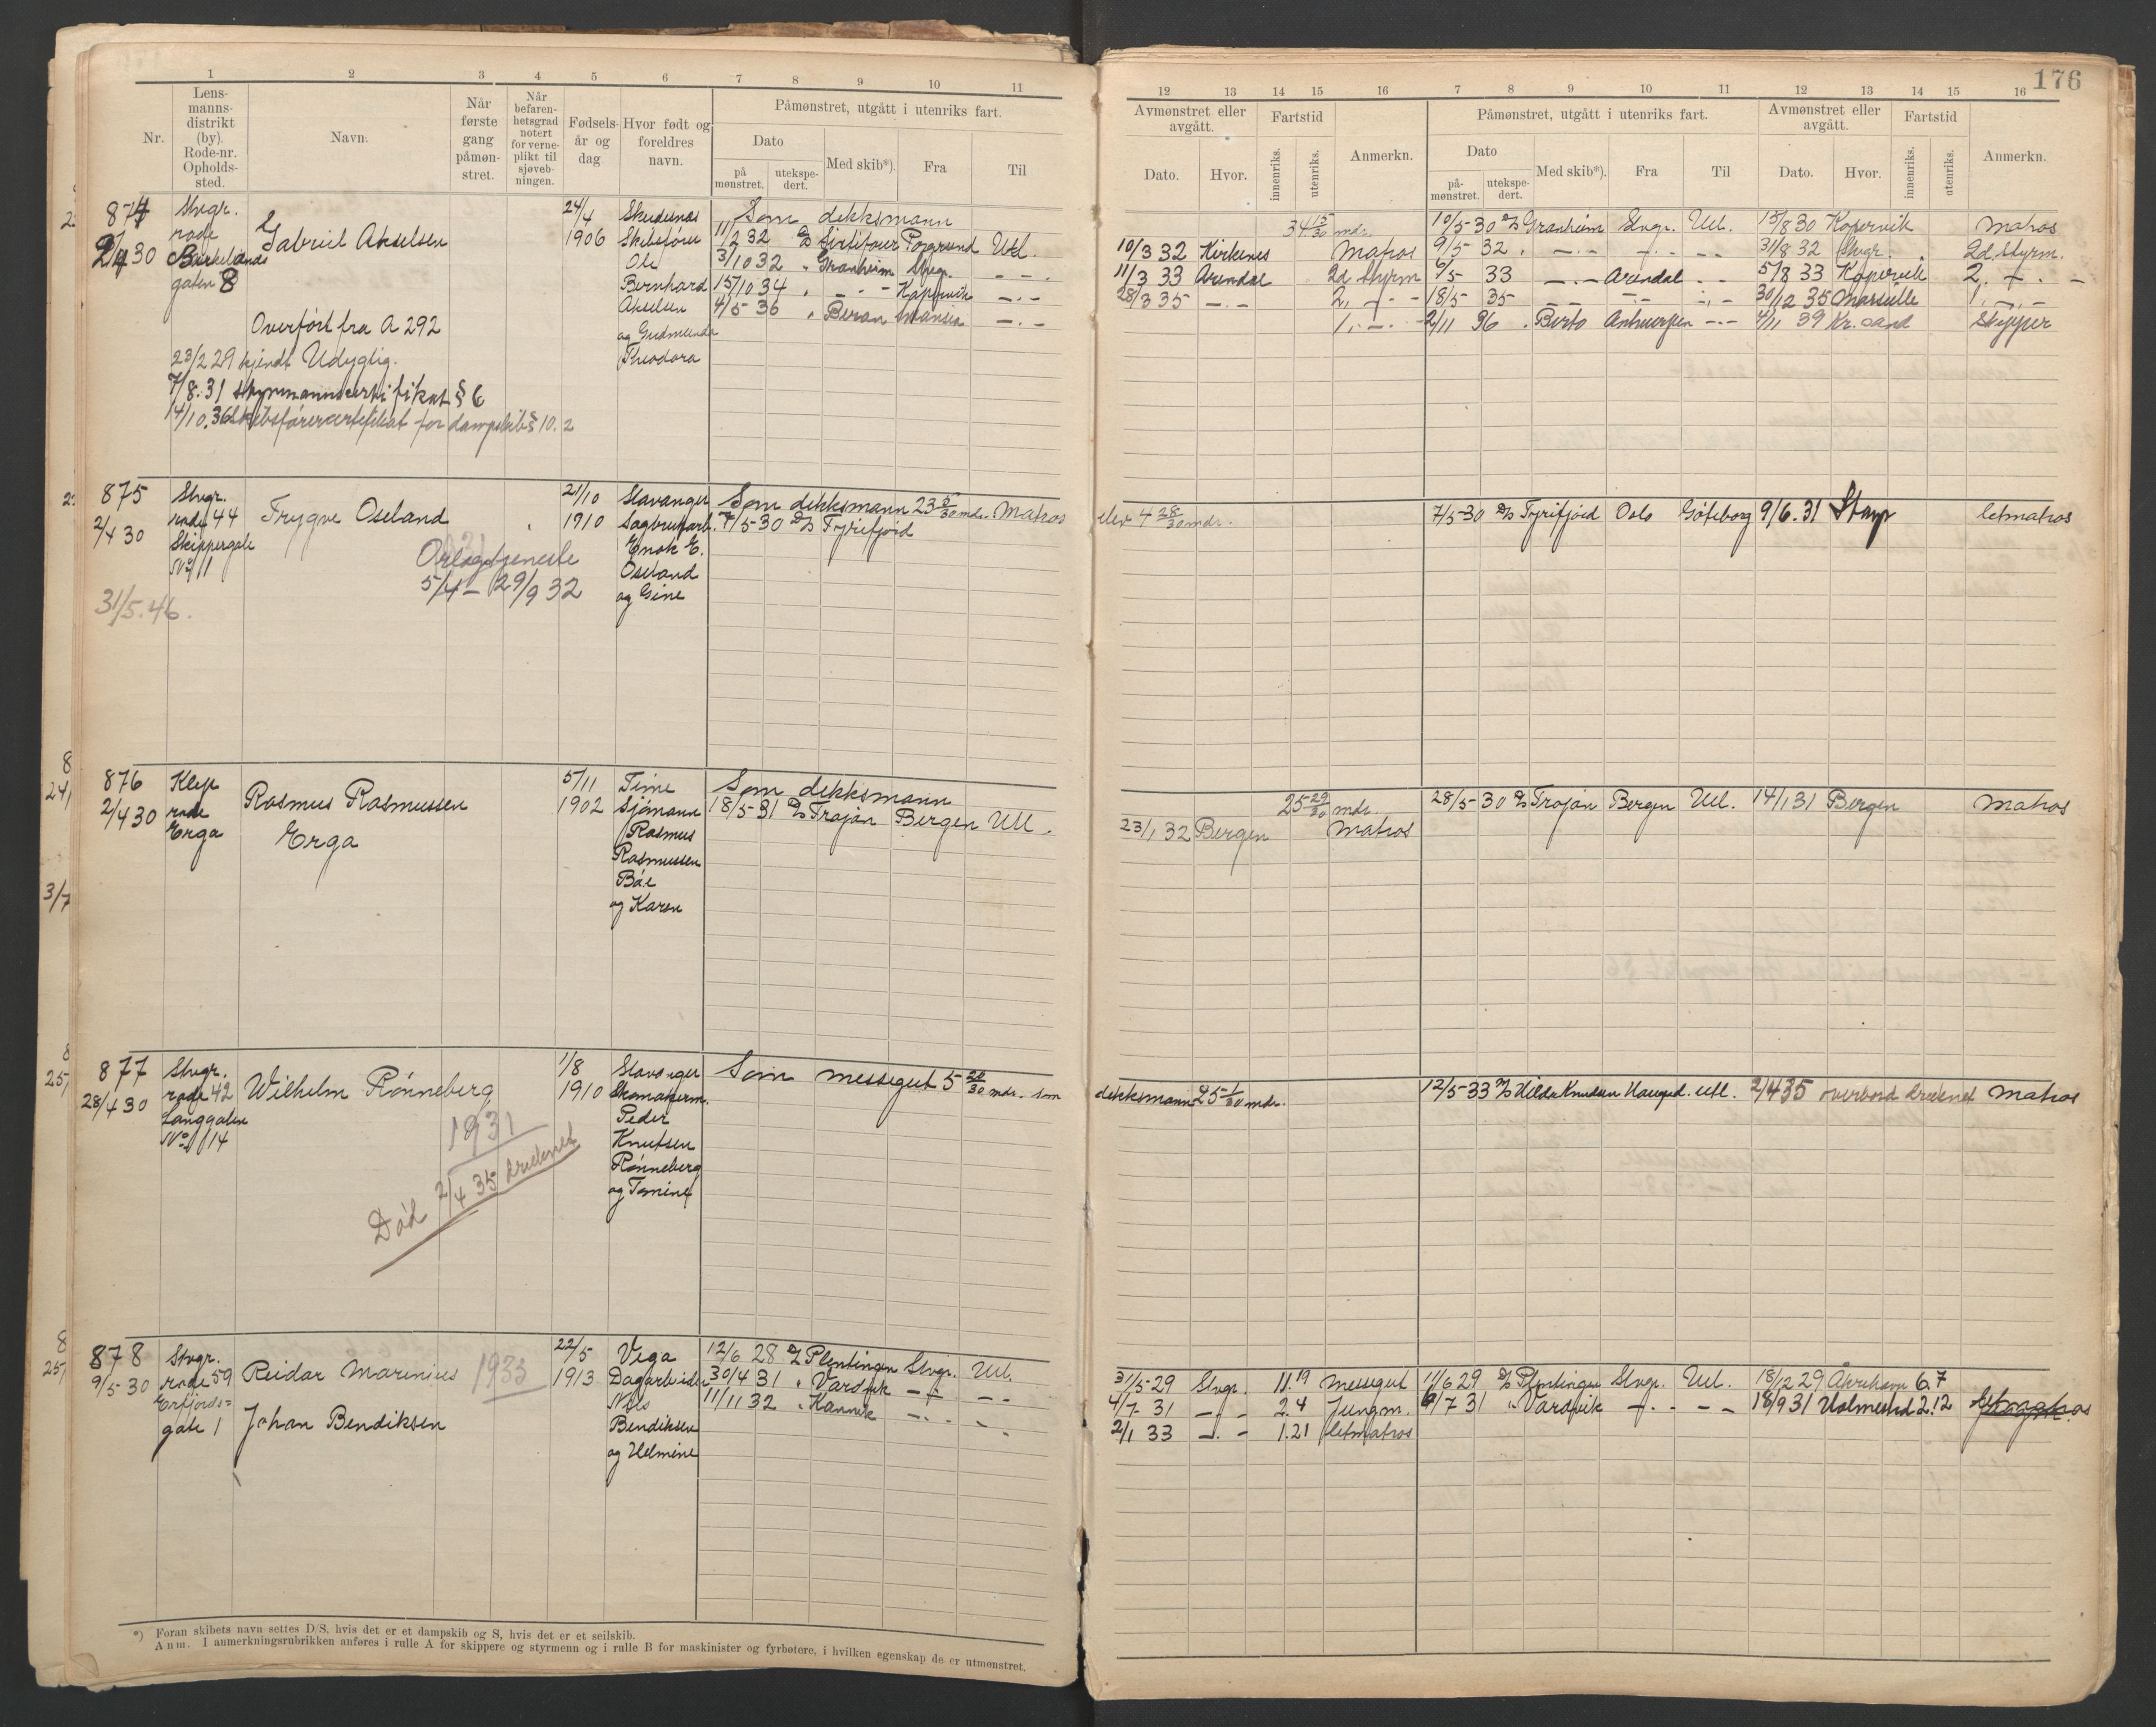 176
1 2 3 4 5 6 7 8 9 10 11
Nr.
Lens-
manns-
distrikt
(by).
Rode-nr.
Opholds-
sted.
Navn.
Når
første
gang
påmøn-
stret.
Når
befaren-
hetsgrad
notert
for verne-
plikt til
sjøveb-
ningen.
Fødsels-
år og
dag
Hvor født og
foreldres
navn.
Påmønstret, utgått i utenriks fart.
Dato
på
mønstret.
utekspe-
dert.
Med skib*).
Fra
Til
874
2/4 30
Stvgr.
rode
Birkelands
gaten 8
Gabriel Akselsen
Overført fra A 292
23/2 29 kjendt Udygtig.
7/8.31 styrmannscertifikat § 6
14/10.36 Skibsførercertifikat for dampskib § 10.2
24/4
1906
Skudesnes
Skibsfører
Ole
Bernhard
Akselsen
og Gudmunda
Theodora
Som dekksmann
11/2 32 D/S Sirtifouer Porsgrund Utl.
3/10 32 " Granheim Stvgr. - - -
15/10 34 " - - - Kopervik - - -
4/5 36 " Beran - - -
875
2/4 30
Stvgr.
rode 44
Skippergate
No 11
31/5.46.
Trygve Oseland
Orlogstjeneste
5/4 - 29/9 32
21/10
1910
Stavanger
Sagbruksarb.
Enok E.
Oseland
og Gine
Som dekksmann 23 5/30 mdr. Matros
7/5-30 D/S Tyrifjord
876
2/4 30
Klep
rode
Erga
Rasmus Rasmussen
Erga
5/11
1902
Time
Sjømann
Rasmus
Rasmussen
Bøe
og Karen
Som dekksmann
18/5-31 D/S Trajan Bergen Utl.
877
28/4 30
Stvgr.
rode 42
Langgaten
No 14
Wilhelm Rønneberg
1931
Død 2/4 35 druknet
1/8
1910
Stavanger
Skomakerm.
Peder
Knutsen
Rønneberg
og Tomine
Som messegut 5 20/30 mdr. som
878
9/5-30
Stvgr.
rode 59
Erfjords-
gate 1
Reidar Marinius 1933
Johan Bendiksen
22/5
1913
Vega
Dagarbeider
Nils
Bendiksen
og Helmine
12/6 28 D/S Plentingen Stvgr. Utl.
30/4 31 " Vardvik - - - -
11/11 32 " Kannik - - - -
*) Foran skibets navn settes D/S, hvis det er et dampskib og S, hvis det er et seilskib.
Anm. I anmerkningsrubrikken anføres i rulle A for skippere og styrmenn og i rulle B for maskinister og fyrbøtere, i hvilken egenskap de er utmønstret.
12 13 14 15 16 7 8 9 10 11 12 13 14 15 16
Avmønstret eller
avgått.
Dato.
Hvor.
Fartstid
innenriks.
utenriks.
Anmerkn.
Påmønstret, utgått i utenriks fart.
Dato
på-
mønstret.
utekspe-
dert.
Med skib*).
Fra
Til
Avmønstret eller
avgått.
Dato.
Hvor.
Fartstid
innenriks.
utenriks.
Anmerkn.
34 15/30 mdr. 10/5-30 D/S Granheim Stvgr. Utl. 15/8 30 Kopervik Matros
10/3 32 Kirkenes Matros 9/5 32 " - - - - - - 31/8 32 Stvgr. 2d styrm.
11/3 33 Arendal 2d styrm 9/5 33 - - - Arendal - - 5/8 33 Kopervik 2. - - -
28/3 35 - - - 2. - - - 18/5 35 - - - - - - 30/12 35 Marseille 1. - - -
1. - - - 2/11 36 . Berto Antwerpen - - - 4/11 39 Kr. sand Skipper
elev 4 28/30 mdr. 7/5-30 D/S Tyrifjord Oslo Göteborg 9/6.31 letmatros
25 29/30 mdr. 28/5-30 D/S Trajan Bergen Utl. 14/1 31 Bergen Matros
23/1 32 Bergen Matros
dekksmann 25 1/30 mdr. 12/5-33 D/S Hilda Knudsen Haugsd. utl. 2/4 35 overbord druknet Matros
31/5-29 Stvgr. 11.19 messegut 11/6 29 D/S Plentingen Stvgr. Utl. 18/12 29 Åkrehavn 6.7
4/7-31 - - - 2.4 Jungm. 9/7 31 " Vardvik - - - - 18/9 31 Holmestrd 2.12
2/1 33 - - - 1.21 letmatros